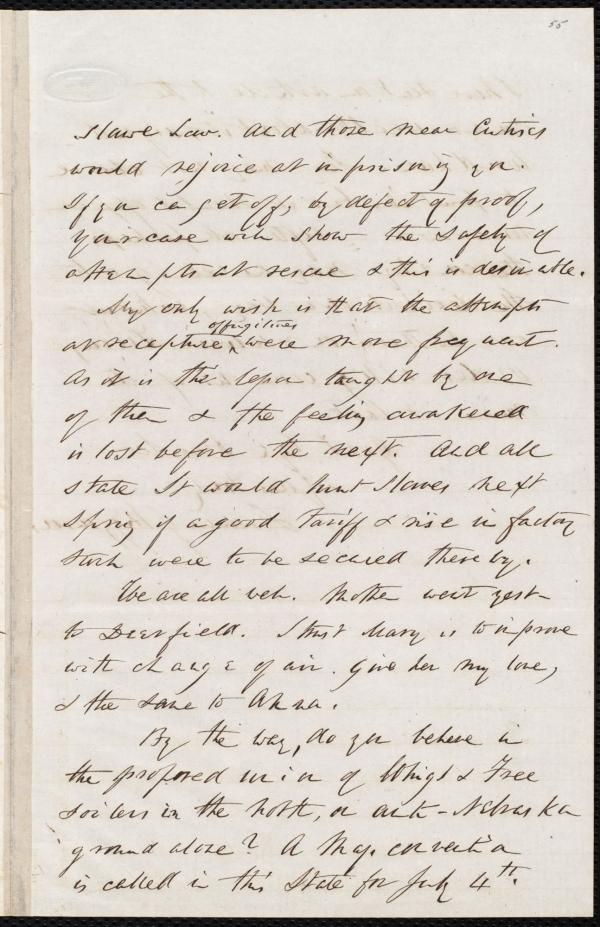 55
Slave Law. And those mean Curtises
would rejoice at imprisoning you.
If you can get off, by defect of proof,
your case will show the safety of
attempts at rescue & this is desirable.
My only wish is that the attempts
of fugitives
at recapture ^ were more frequent.
As it is the lesson taught by one
of them & the feeling awakened
is lost before the next. And all
State St would hunt slaves next
Spring if a good tariff & rise in factory
stock were to be secured thereby.
We are all well. Mother went yest-
to Deerfield. I trust Mary is to improve
with change of air. Give her my love,
& the same to Anna.
By the way, do you believe in
the proposed union of Whigs & Free
soilers in the North, on anti-Nebraska
ground alone? A Mass. convention
is called in this State for July 4th.